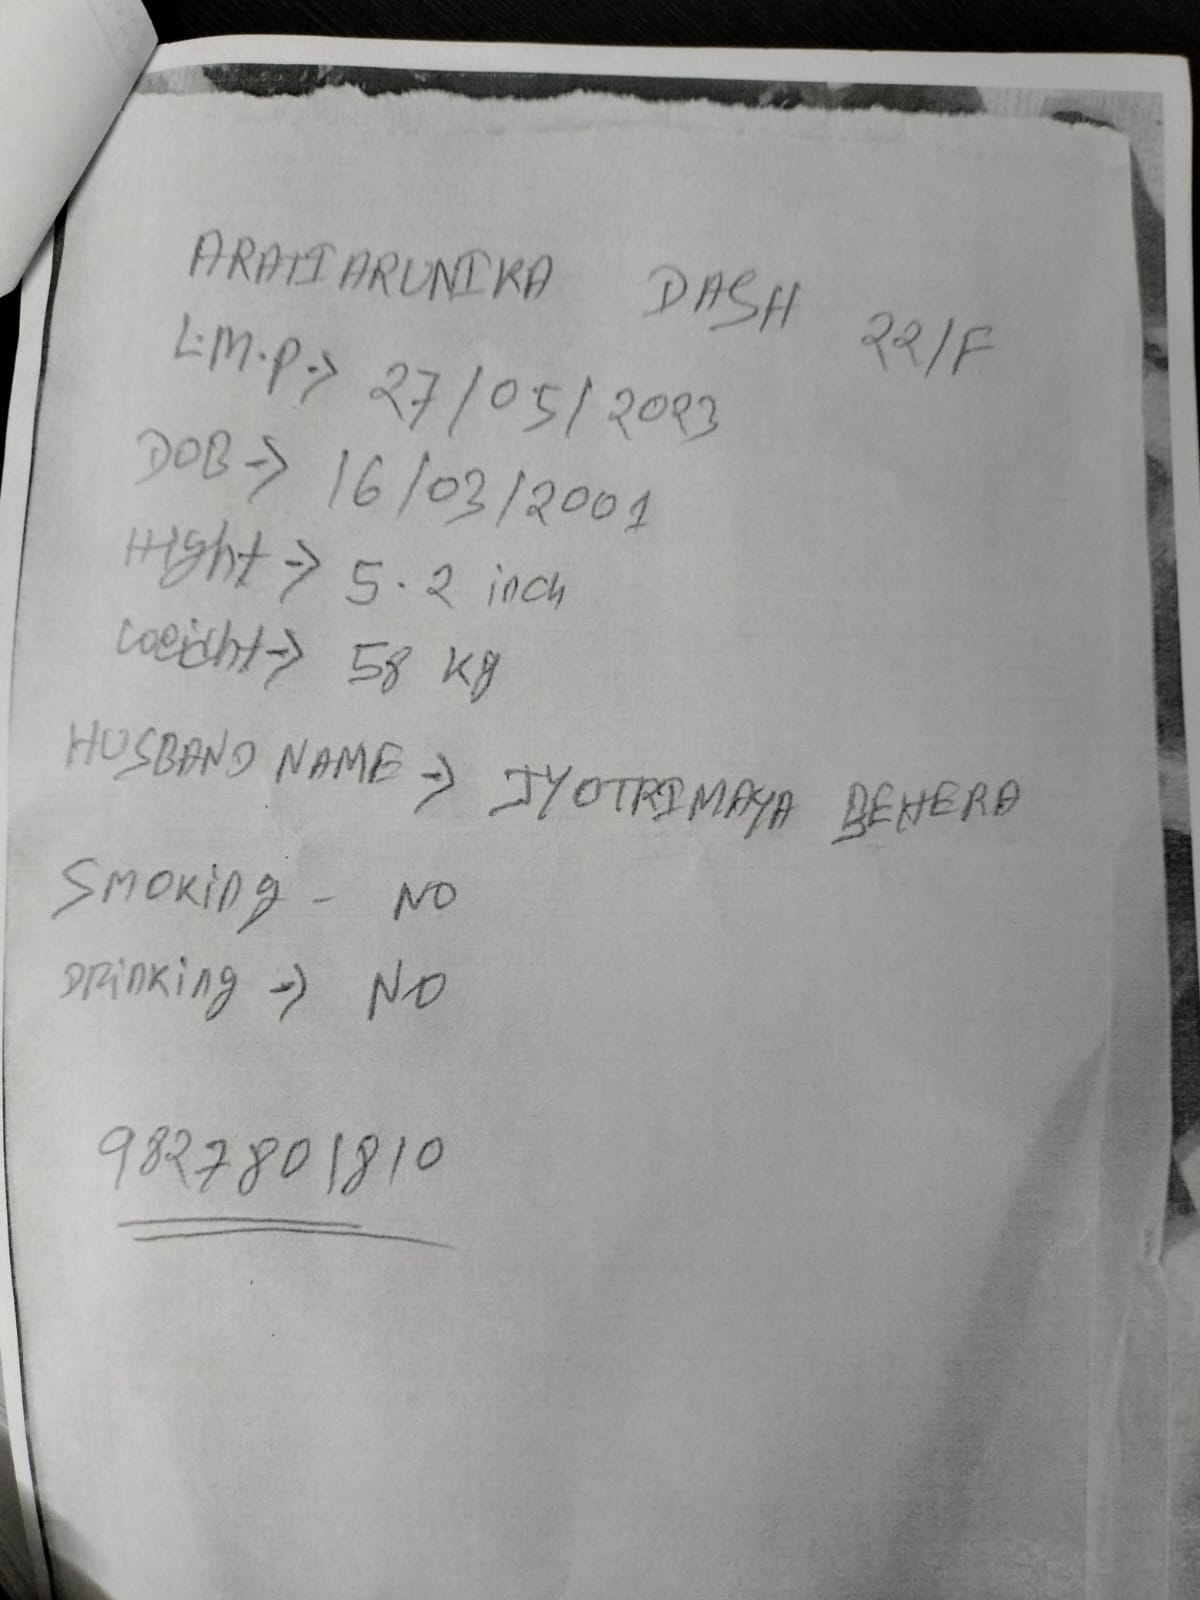 ARATIARUNIKA DASH 22/F
L.M.P.→ 27/05/2023
DOB→ 16/03/2001
Hight→ 5.2 inch
Weicht→ 58 kg
HUSBAND NAME→ JYOTRIMAYA BEHERA
Smoking - NO
Drinking→ NO
9827801810